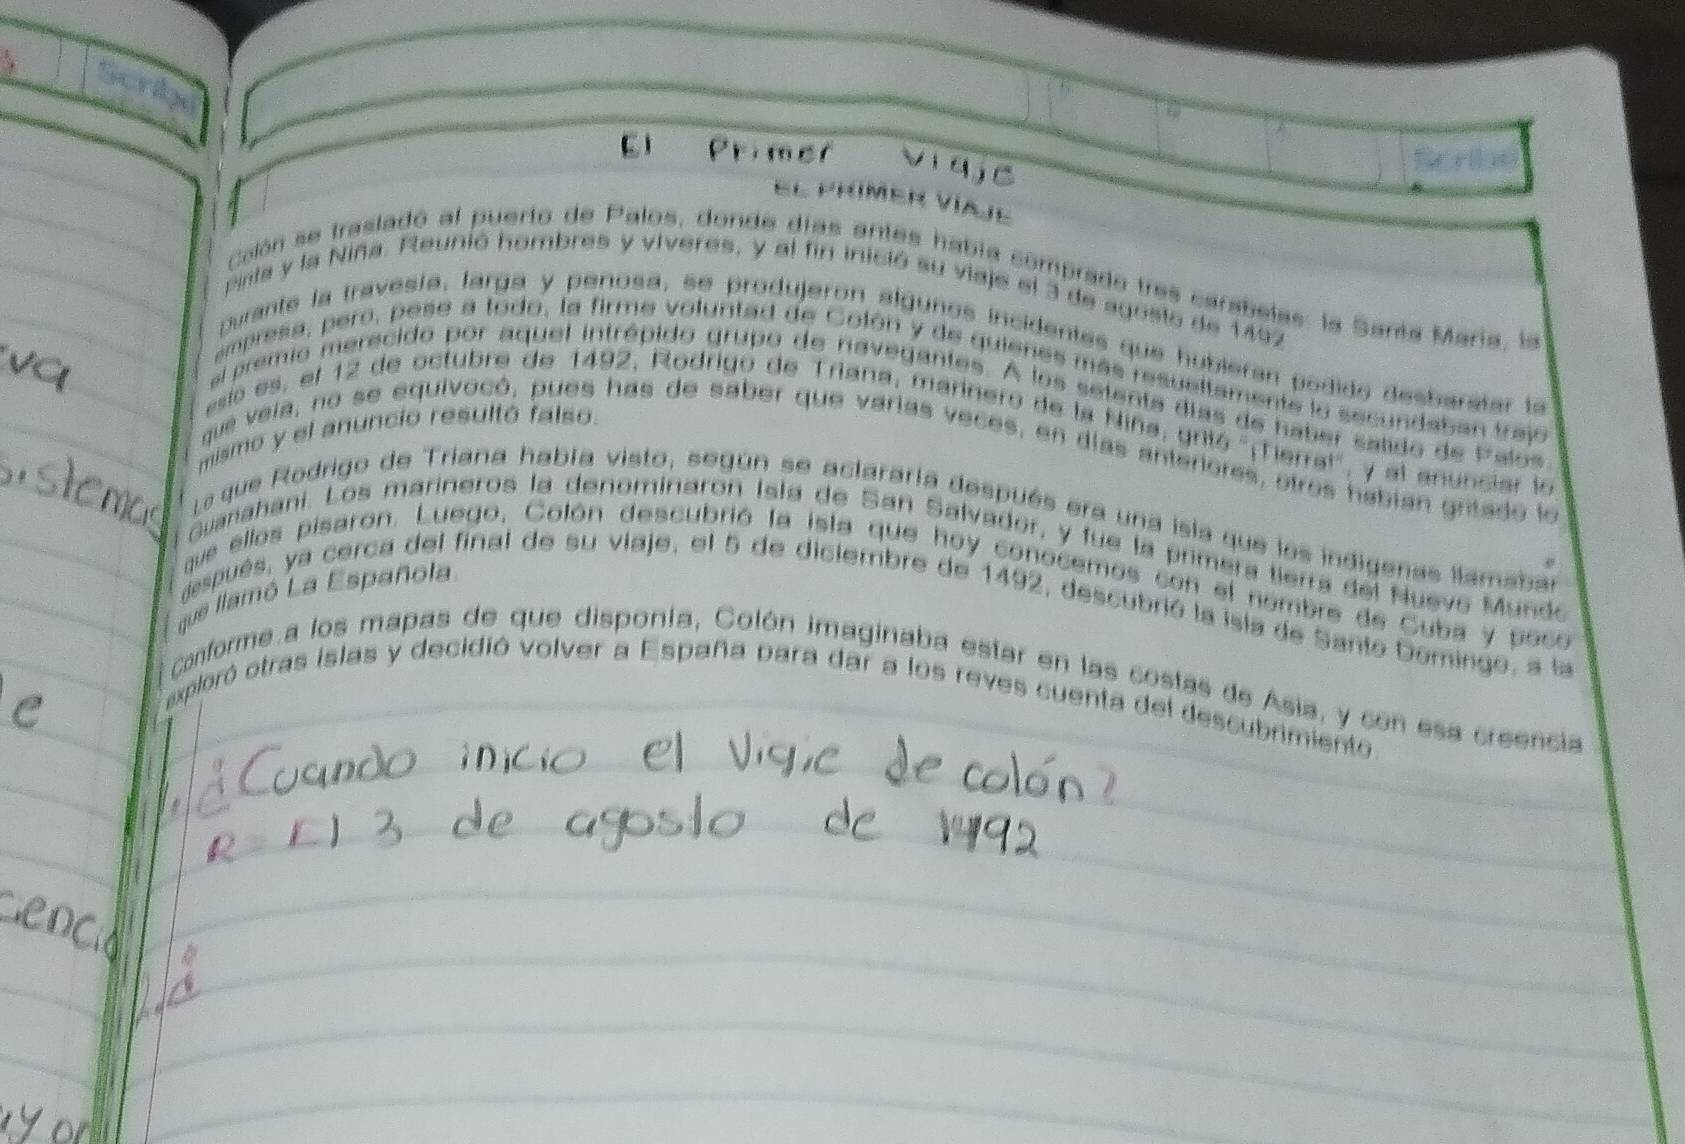 Scribe
Scribe
El Primer Viaje
EL PRIMER VIAJE
Colón se trasladó al puerto de Palos, donde días antes había comprado tres carabelas: la Santa María, la
Pinta y la Niña. Reunió hombres y víveres, y al fin inició su viaje el 3 de agosto de 1492.
Durante la travesía, larga y penosa, se produjeron algunos incidentes que hubieran podido desbaratar la
empresa, pero, pese a todo, la firme voluntad de Colón y de quienes más resueltamente lo secundaban trajo
el premio merecido por aquel intrépido grupo de navegantes. A los setenta días de haber salido de Palos,
esto es, el 12 de octubre de 1492, Rodrigo de Triana, marinero de la Niña, gritó "¡Tierra!", y al anunciar lo
que veía, no se equivocó, pues has de saber que varias veces, en días anteriores, otros habían gritado lo
mismo y el anuncio resultó falso.
Lo que Rodrigo de Triana había visto, según se aclararía después era una isla que los indígenas llamaban
Guanahani. Los marineros la denominaron Isla de San Salvador, y fue la primera tierra del Nuevo Mundo
que ellos pisaron. Luego, Colón descubrió la isla que hoy conocemos con el nombre de Cuba y poco
después, ya cerca del final de su viaje, el 5 de diciembre de 1492, descubrió la isla de Santo Domingo, a la
que llamó La Española.
Conforme a los mapas de que disponía, Colón imaginaba estar en las costas de Asia, y con esa creencia
exploró otras islas y decidió volver a España para dar a los reyes cuenta del descubrimiento.
1. ¿Cuando inicio el Viaje de colón?
R= El 3 de agosto de 1492
2. ¿
va
sistemas
le
ciencia
ayor